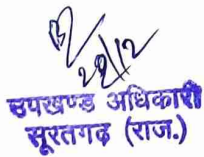 29/12
उपखण्ड अधिकारी
सूरतगढ़ (राज.)